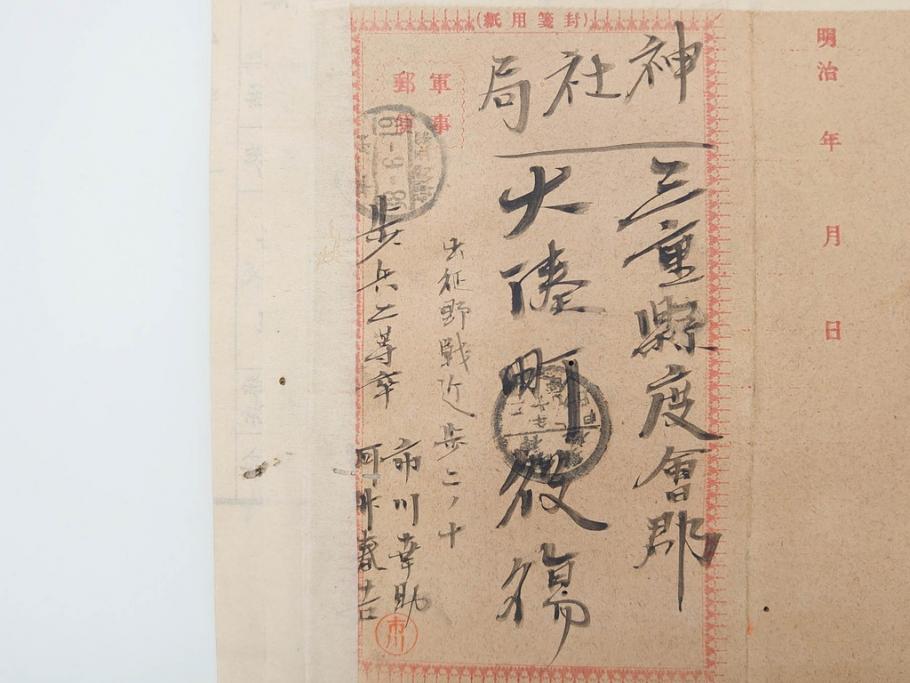 (紙用箋封)
明治 年 月 日
神社局
三重縣度會郡
大湊町役場
軍事
郵便
出征野戰近歩二ノ十
歩兵二等卒
市川幸助
阿井春吉
市川